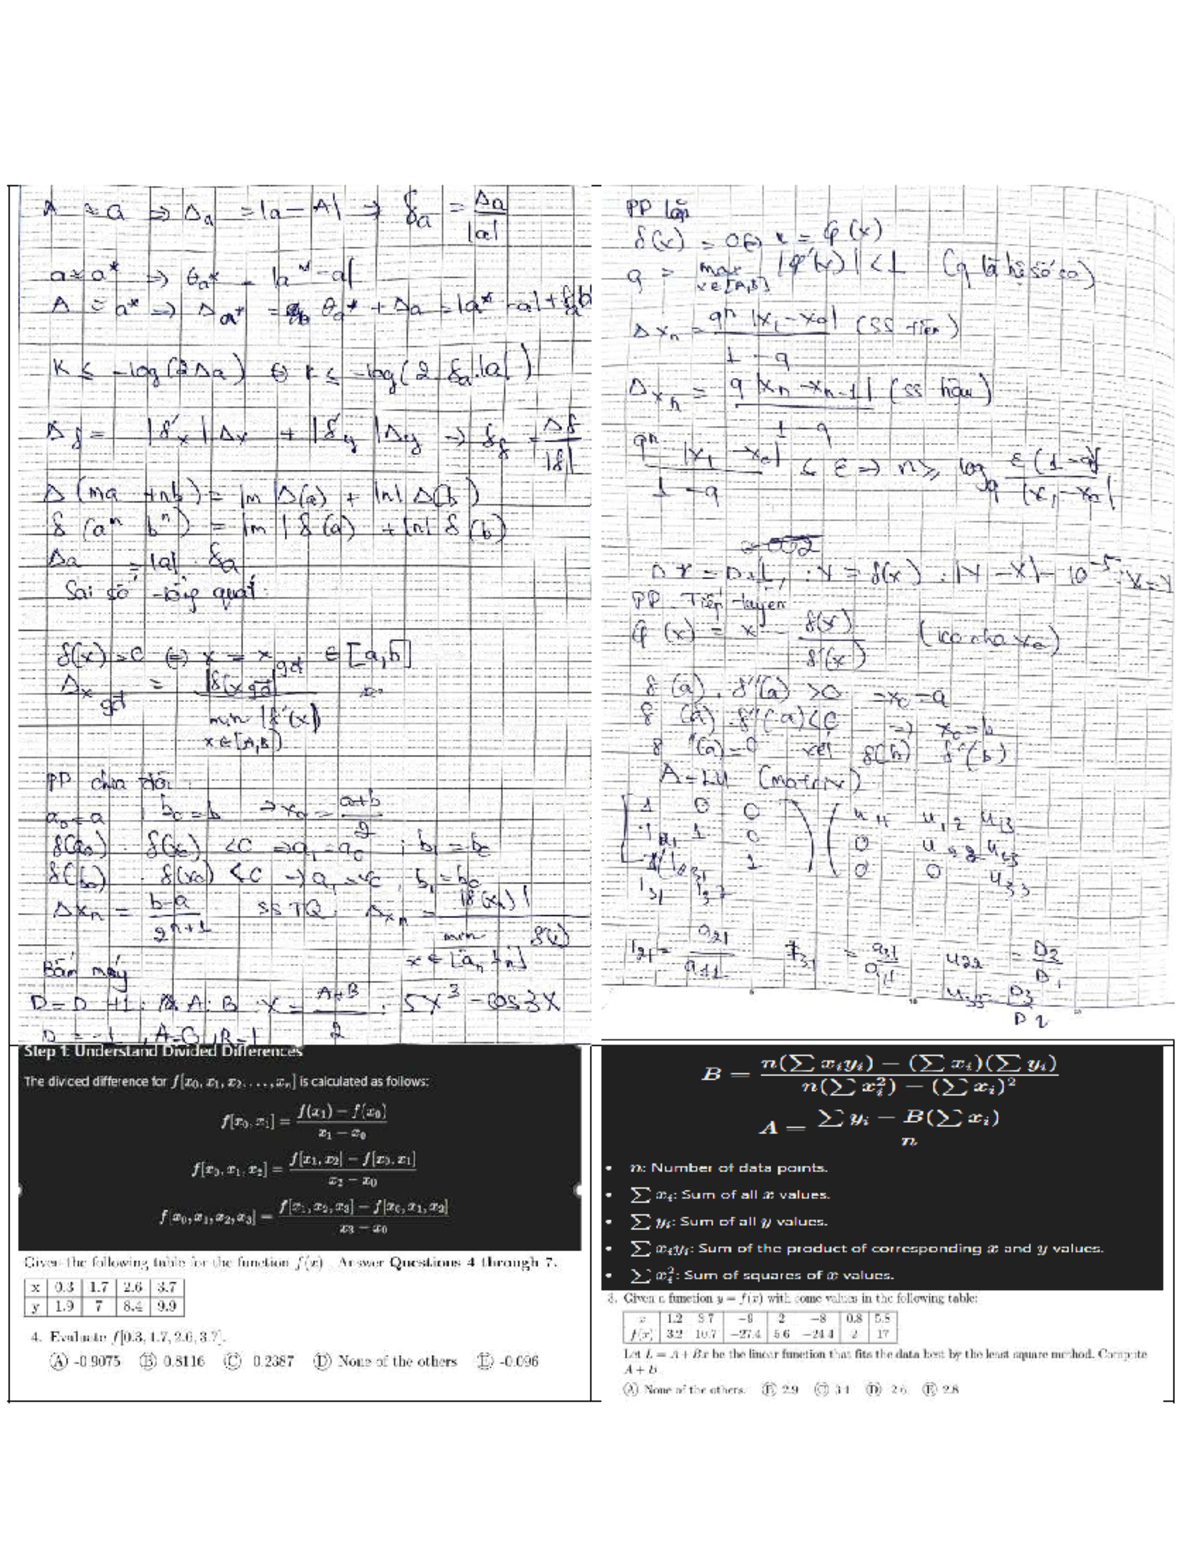 A ≈ a ⇒ Δa = |a - A| ⇒ δa = Δa / |a|
a ≈ a* ⇒ θa* = |a* - a|
A ≈ a* ⇒ Δa* = θa* + Δa = |a* - a| +
K ≤ -log(2Δa) ⇔ K ≤ -log(2 δa.|a|)
Δf = |f'x|Δx + |f'y|Δy ⇒ δf = Δf / |f|
Δ(ma + nb) = |m|Δ(a) + |n|Δ(b)
δ(aᵐ bⁿ) = |m|δ(a) + |n|δ(b)
Δa = |a| . δa
Sai số tổng quát:
f(x) = 0 ⇔ x = xgđ ∈ [a,b]
Δxgđ = |f(xgđ)| / min |f'(x)|
x ∈ [A,B]
PP chia đôi:
a₀ = a b₀ = b ⇒ x₀ = (a+b) / 2
f(a₀) . f(x₀) < 0 ⇒ a₁ = a₀ ; b₁ = x₀
f(b₀) . f(x₀) < 0 ⇒ a₁ = x₀ , b₁ = b₀
Δxn = (b-a) / 2ⁿ⁺¹ SSTQ: Δxn = |f(xn)| / min f'(x)
x ∈ [an, bn]
Bấm máy
D = D+1 : A : B : X = (A+B) / 2 : 5X³ - cos3X
D = -1, A = 0, B = 1
PP lặp
f(x) = 0 ⇔ x = φ(x)
q = max |φ'(x)| < 1 (q là hệ số co)
x ∈ [A,B]
Δxn = qⁿ |x₁ - x₀| / (1 - q) (SS tiên)
Δxn = q |xn - xn-1| / (1 - q) (SS hậu)
qⁿ |x₁ - x₀| / (1 - q) ≤ ε ⇒ n ≥ log q ε(1-q) / |x₁ - x₀|
D = D+1 : Y = f(x) : |Y - X| - 10⁻⁵ : X = Y
PP Tiếp tuyến
φ(x) = x - f(x) / f'(x)
f(a) . f''(a) > 0 ⇒ x₀ = a
f(a) . f''(a) < 0 ⇒ x₀ = b
f''(a) = 0 xét f(b) f''(b)
A = LU (matrix)
1 0 0 u11 u12 u13
l21 1 0 0 u22 u23
l31 l32 1 0 0 u33
l21 = a21 / a11 l31 = a31 / a11 u22 = D2 / D1
u33 = D3 / D2
Step 1: Understand Divided Differences
The divided difference for f[x₀, x₁, x₂, . . . , xₙ] is calculated as follows:
f[x₀, x₁] = (f(x₁) − f(x₀)) / (x₁ − x₀)
f[x₀, x₁, x₂] = (f[x₁, x₂] − f[x₀, x₁]) / (x₂ − x₀)
f[x₀, x₁, x₂, x₃] = (f[x₁, x₂, x₃] − f[x₀, x₁, x₂]) / (x₃ − x₀)
Given the following table for the function f(x) . Answer Questions 4 through 7.
x 0.3 1.7 2.6 3.7
y 1.9 7 8.4 9.9
4. Evaluate f[0.3, 1.7, 2.6, 3.7].
(A) -0.9075 (B) 0.8116 (C) 0.2387 (D) None of the others (E) -0.096
B = (n(∑ xᵢyᵢ) − (∑ xᵢ)(∑ yᵢ)) / (n(∑ xᵢ²) − (∑ xᵢ)²)
A = (∑ yᵢ − B(∑ xᵢ)) / n
• n: Number of data points.
• ∑ xᵢ: Sum of all x values.
• ∑ yᵢ: Sum of all y values.
• ∑ xᵢyᵢ: Sum of the product of corresponding x and y values.
• ∑ xᵢ²: Sum of squares of x values.
3. Given a function y = f(x) with some values in the following table:
x 1.2 3.7 −9 2 −8 0.8 5.8
f(x) 3.2 10.7 −27.4 5.6 −24.4 2 17
Let L = A + Bx be the linear function that fits the data best by the least square method. Compute
A + B
(A) None of the others. (B) 2.9 (C) 3.1 (D) 2.6 (E) 2.8